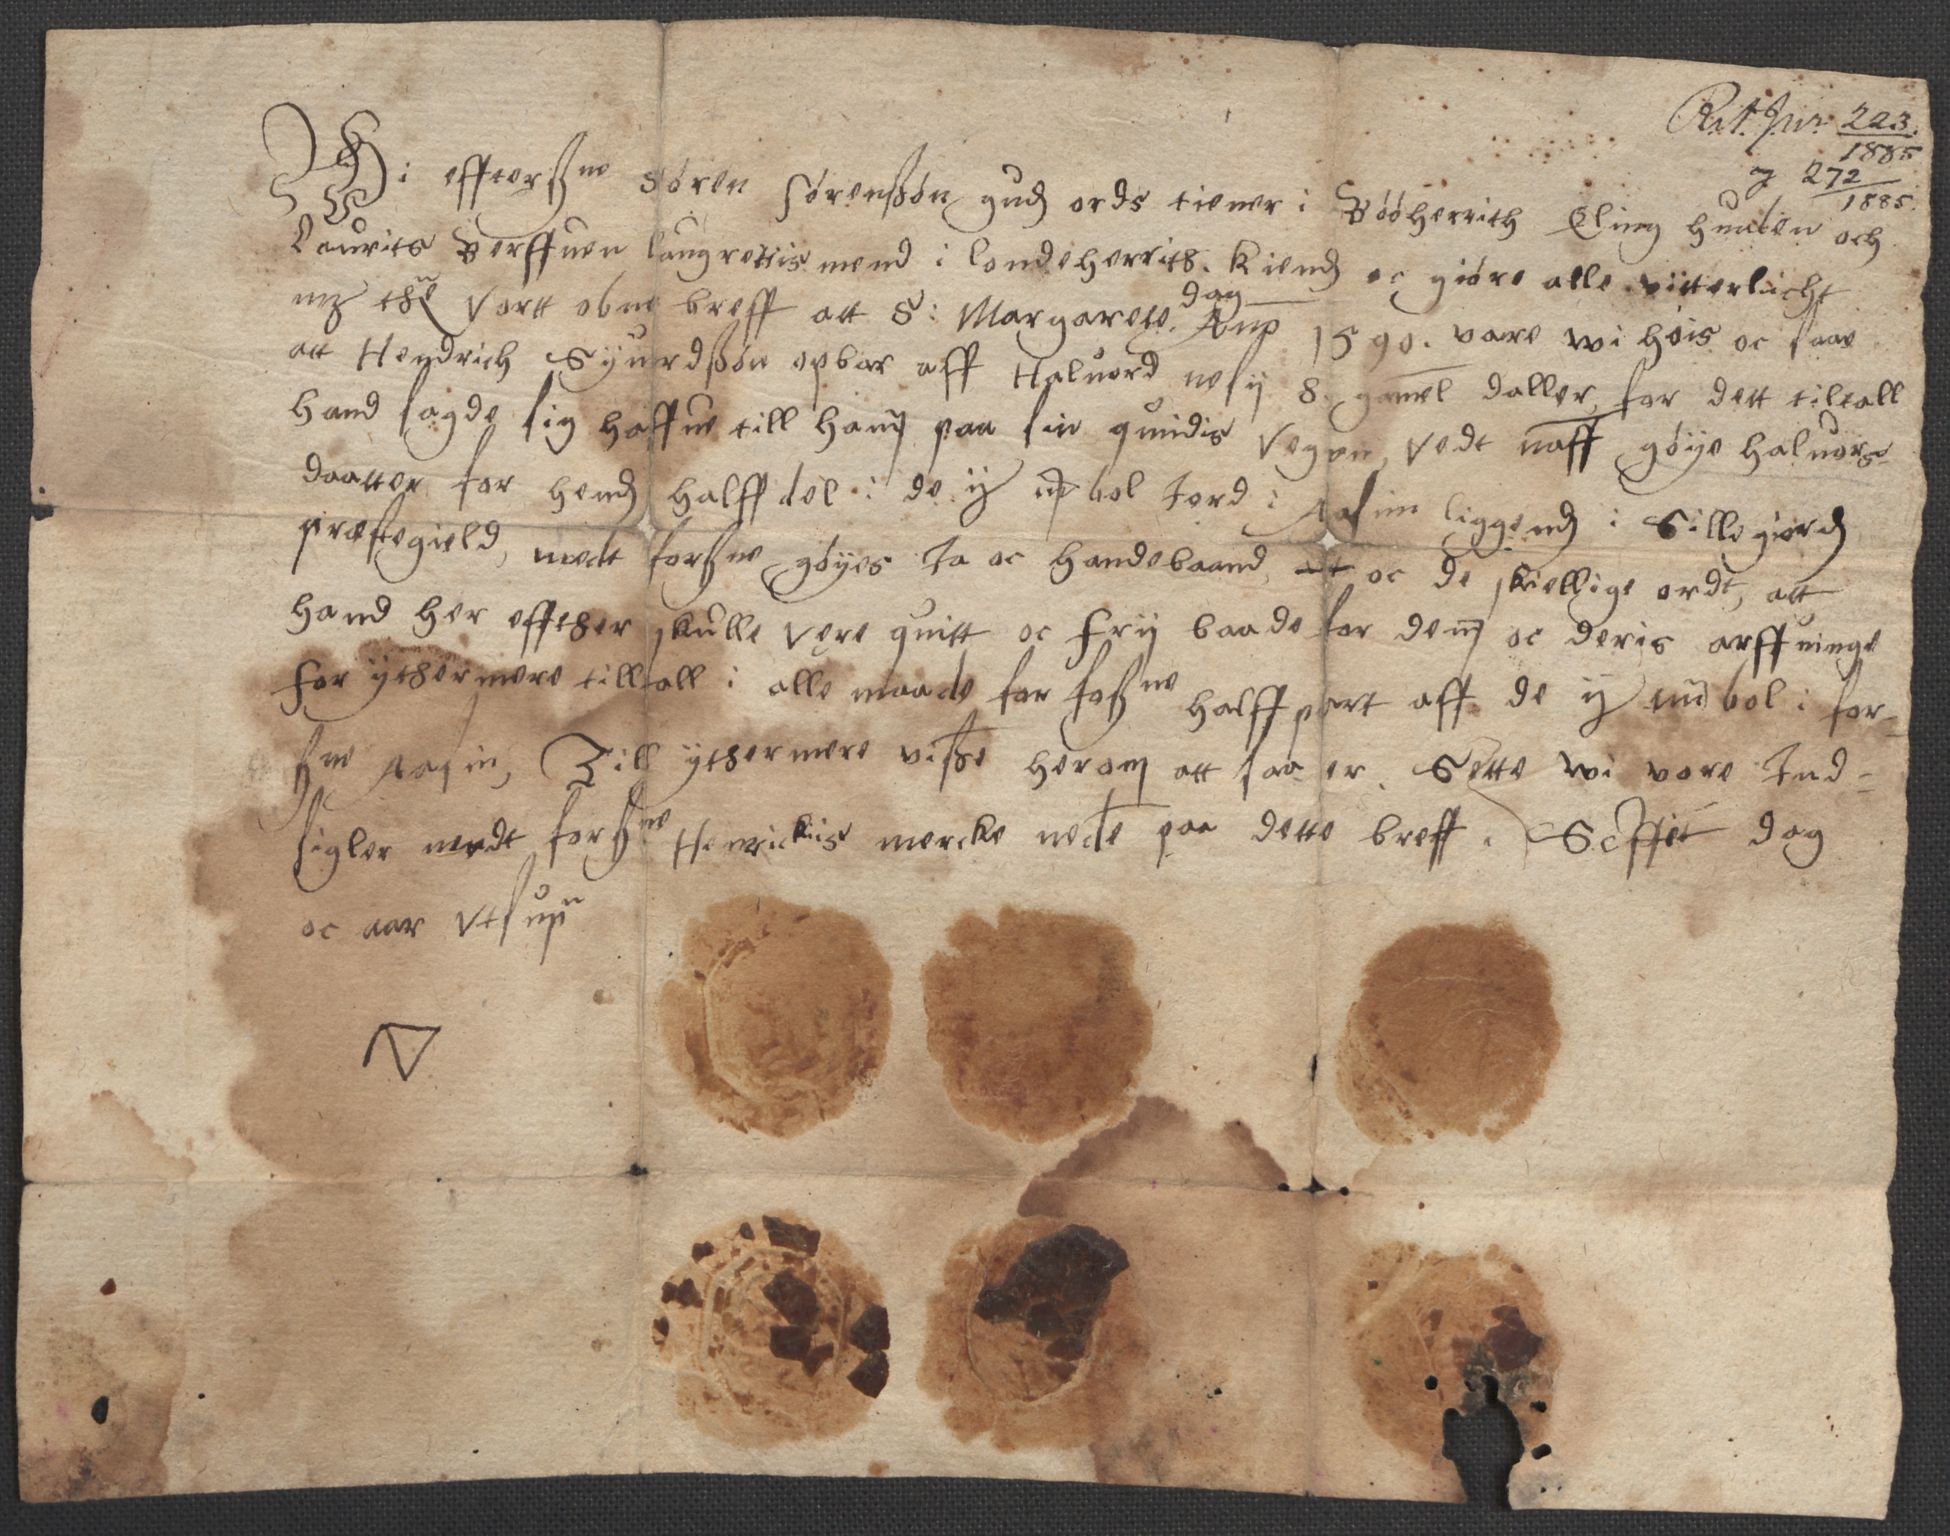 R.A. Jur 223.
1885
J 272
1885
Wi effterschne Sören Sörenßön gudz ords tiener i Bööherrith Eling Hunben och
Laurits Berffuen laugrettis mend i londeherrith. Kiendz oc giöre alle vitterlicht
mz thē vortt obne breff att S: Margarete dag Anno 1590. vare wi höis oc saae
att Hendrich Syurdßön opbar aff Haluord nesy 8 gamel daller, for dett tiltall
hand sagde sig haffue till hanz paa sin quindis vegen, vedt naff göye haluors-
daatter for hendz halffdel i de ij bol Jord i Aasim liggendz i Sillegiordz
præstegield, medt forschne göyes Ja oc handebaand, oc de skiellige ordt, att
hand her effther skulle vere quitt oc fry baade for dem oc deris arffuinge
for ythermere tilltall i alle maade for forschne halffpart aff de ij bol i for-
schne Aasin, Till ythermere visße herom att saa er, Sette wi vore Ind-
sigler medt forschne Henrickiis mercke nede paa dette breff. Scriffuit dag
oc aar vt supra